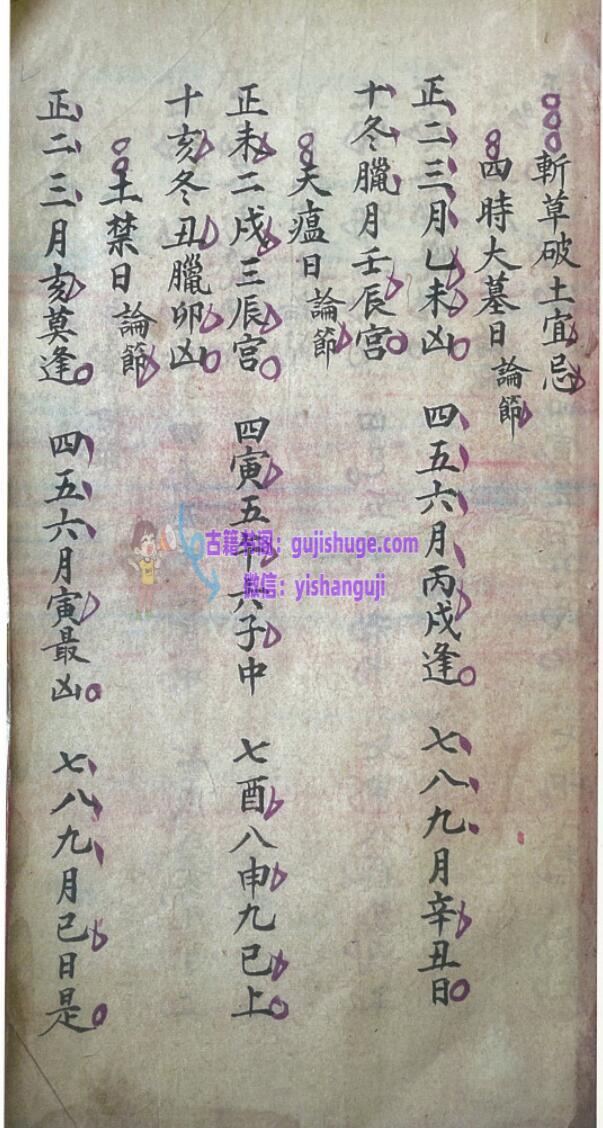 斬草破土宜忌
四時大墓日 論節
正二三月乙未凶 四五六月丙戌逢 七八九月辛丑日
十冬臘月壬辰宮
天瘟日 論節
正未二戌三辰宮 四寅五午六子中 七酉八申九巳上
十亥冬丑臘卯凶
土禁日 論節
正二三月亥莫逢 四五六月寅最凶 七八九月巳日是
古籍书阁：gujishuge.com
微信：yishanguji